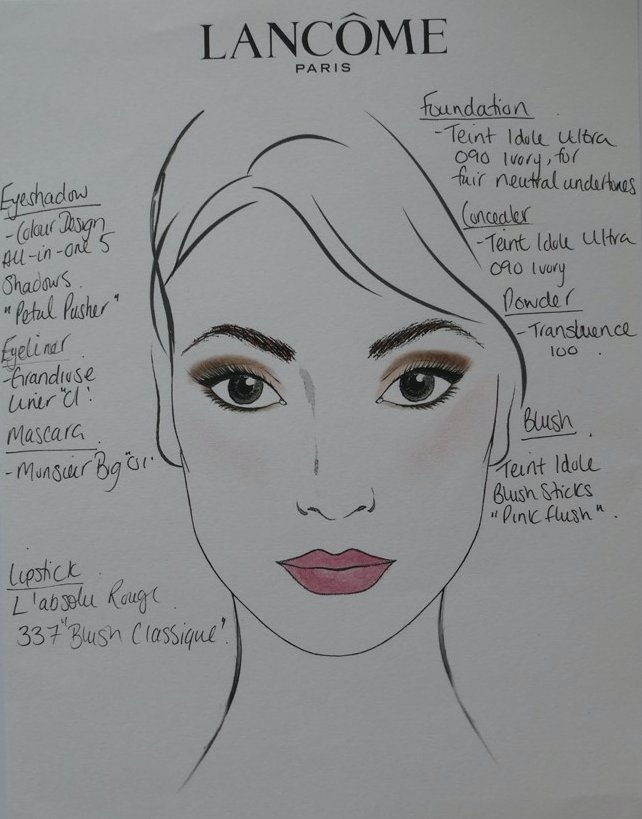 LANCÔME
PARIS
Eyeshadow
- Colour Design
All-in-one 5
Shadows.
"Petal Pusher"
Eyeliner
- Grandiose
Liner "01".
Mascara
- Monsieur Big "01".
Lipstick
L'absolu Rouge
337 "Blush Classique".
Foundation
- Teint Idole Ultra
090 Ivory, for
fair neutral undertones
Concealer
- Teint Idole Ultra
090 Ivory
Powder
- Transluence
100.
Blush
- Teint Idole
Blush Sticks
"Pink flush".